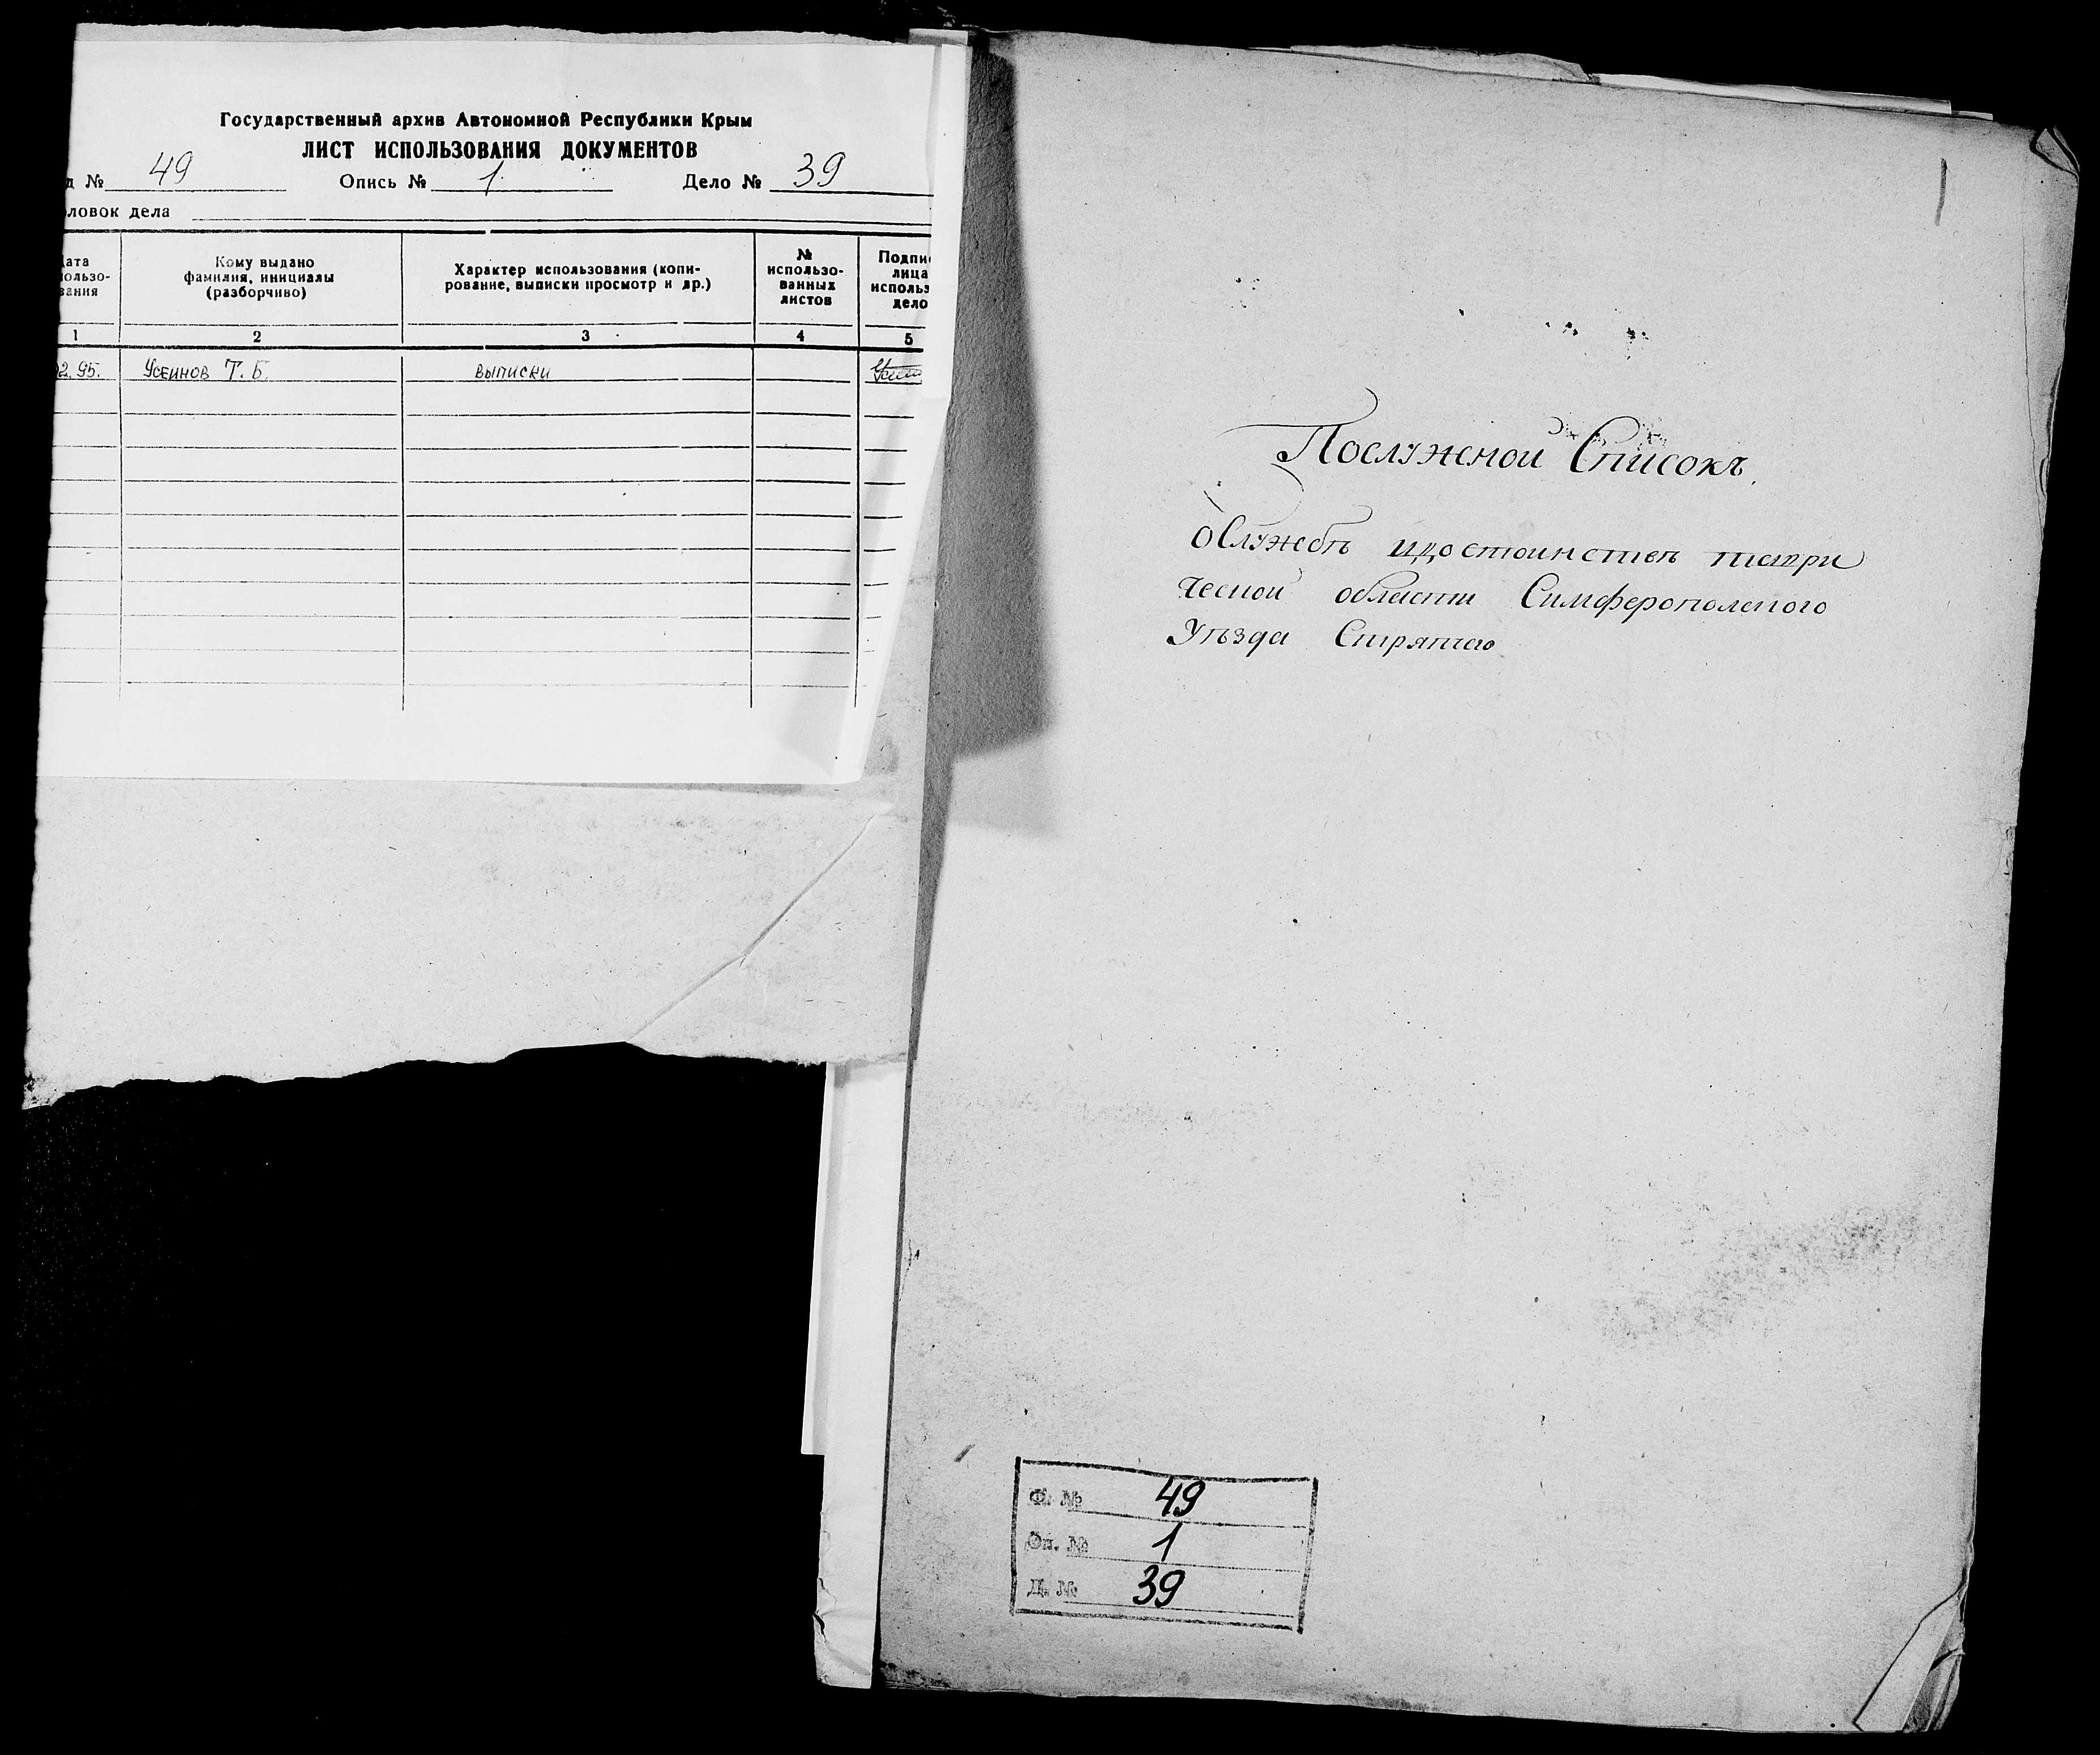 Государственный архив Автономной Республики Крым
ЛИСТ ИСПОЛЬЗОВАНИЯ ДОКУМЕНТОВ
д № 49 Опись № 1 Дело № 39
ловок дела
ата
ользо-
вания
Кому выдано
фамилия, инициалы
(разборчиво)
Характер использования (копи-
рование, выписки просмотр и др.)
№
использо-
ванных
листов
Подпи
лица
использ
дело
1 2 3 4 5
2.95. Усеинов Т.Б. выписки
Послужной Списокъ
о Службѣ и достоинствѣ таври
ческой области Симферополского
Уѣзда Стряпчего
Ф. № 49
Оп. № 1
Д. № 39